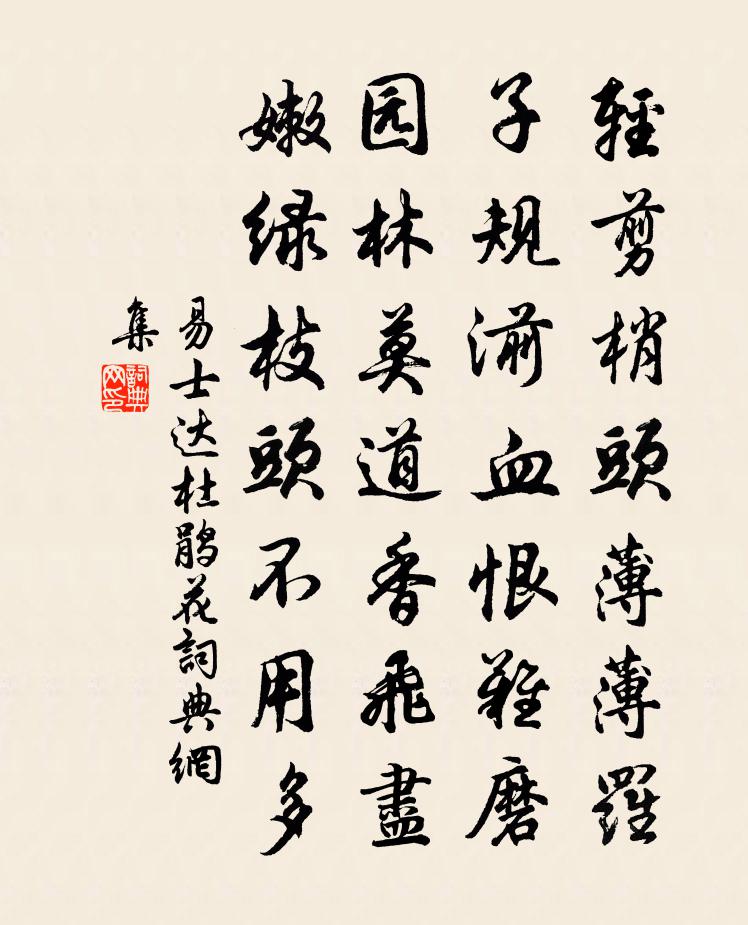 輕剪梢頭薄薄羅
子規湔血恨難磨
园林莫道香飛盡
嫩绿枝頭不用多
易士达杜鹃花詞典網
集
詞典
网印